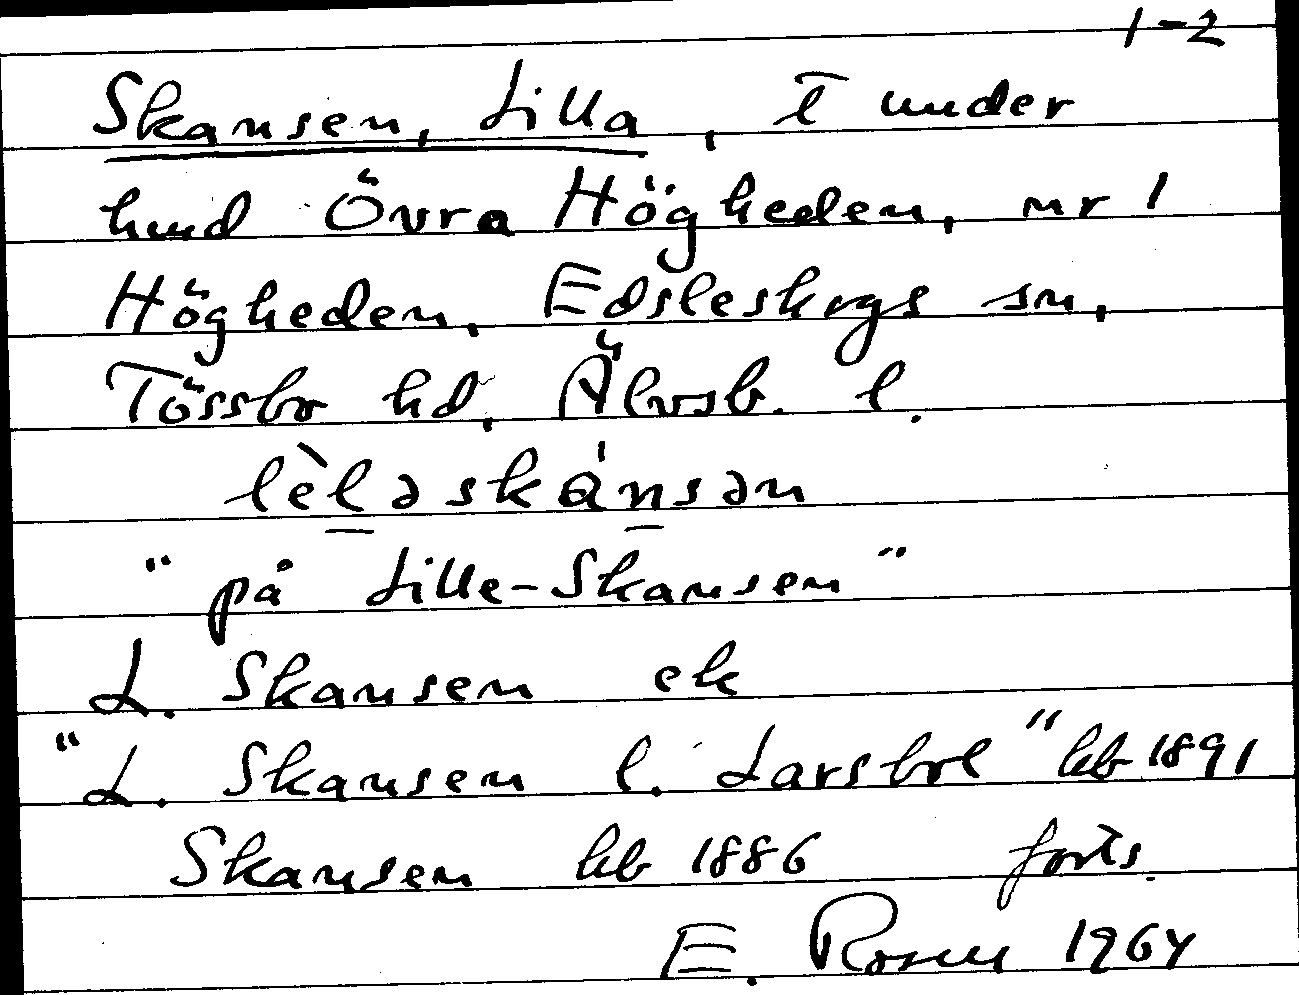 1-2
Skansen, Lilla, t under
hmd Övra Högheden, nr 1
Högheden, Edsleskogs sn,
Tössbo hd, Älvsb. l.
lèləskánsən
"på Lille-Skansen"
L. Skansen ek
"L. Skansen l. Larsbol" hb 1891
Skansen hb 1886 forts.
E. Rosen 1964